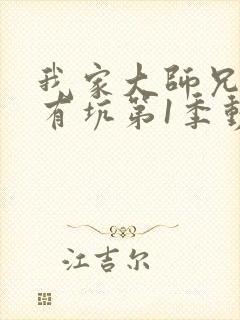 我家大師兄
有坑第1季動
江吉尔